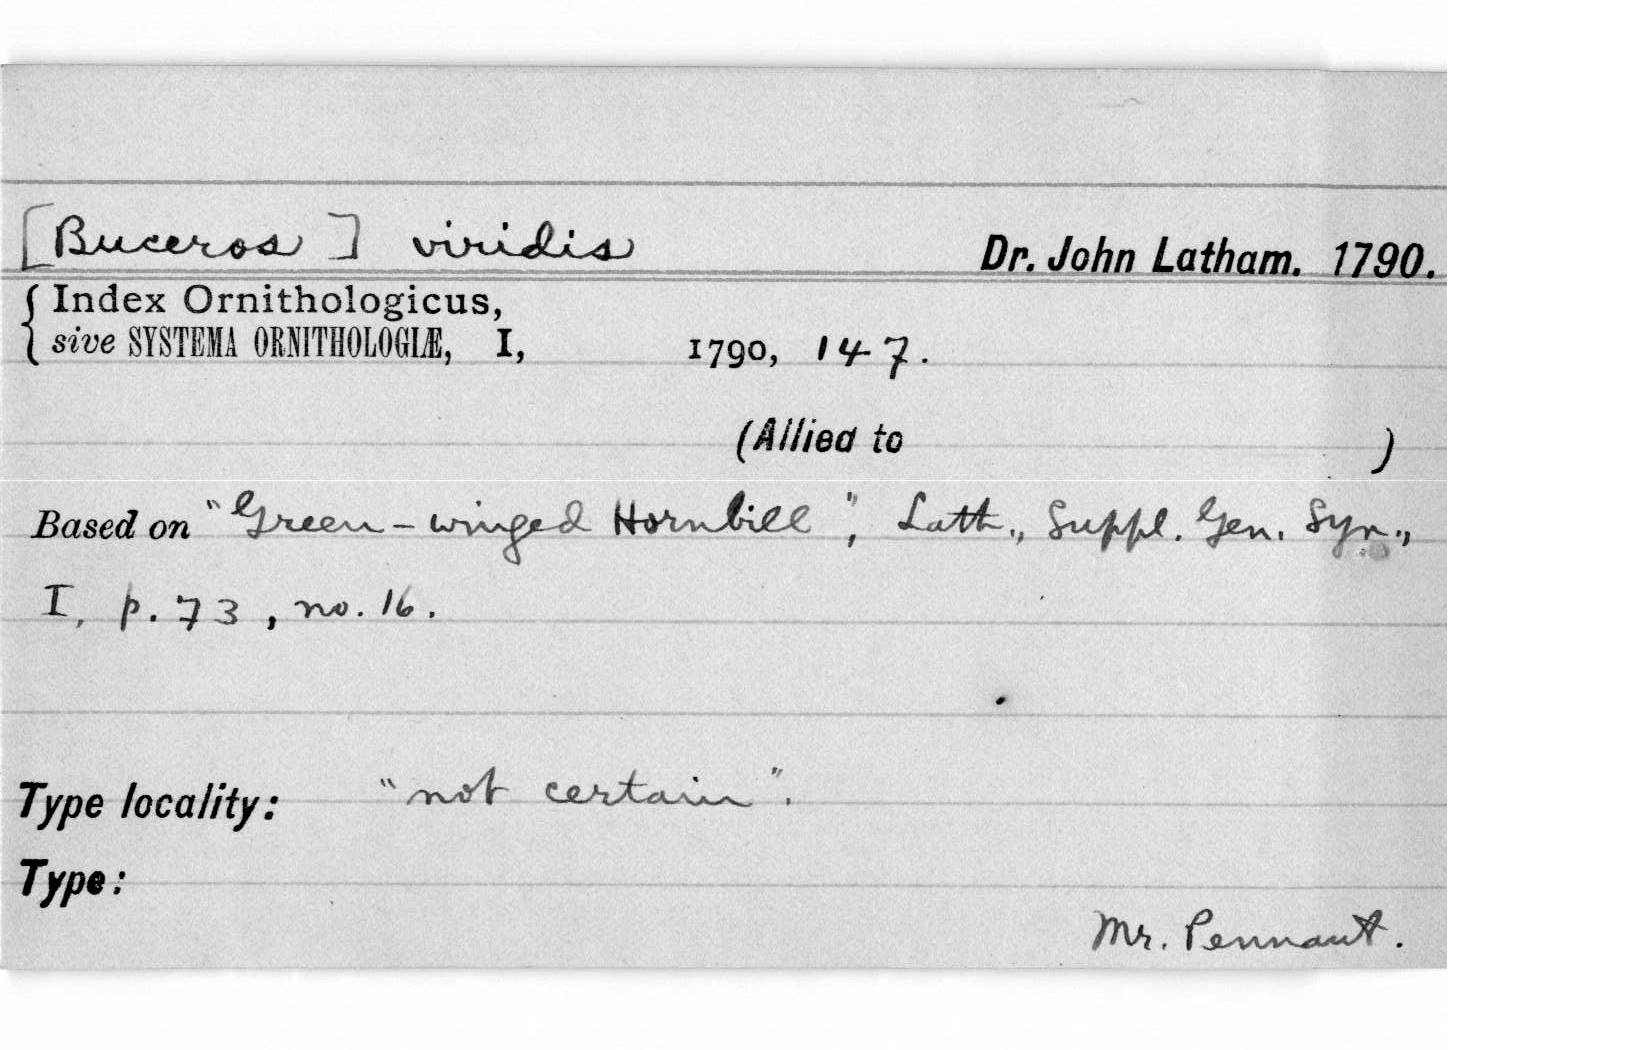 [Buceros] viridis Dr. John Latham. 1790.
Index Ornithologicus,
sive SYSTEMA ORNITHOLOGIÆ, I, 1790, 147.
(Allied to )
Based on "Green-winged Hornbill", Lath., Suppl. Gen. Syn.,
I, p. 73, no. 16.
Type locality: "not certain".
Type:
Mr. Pennant.